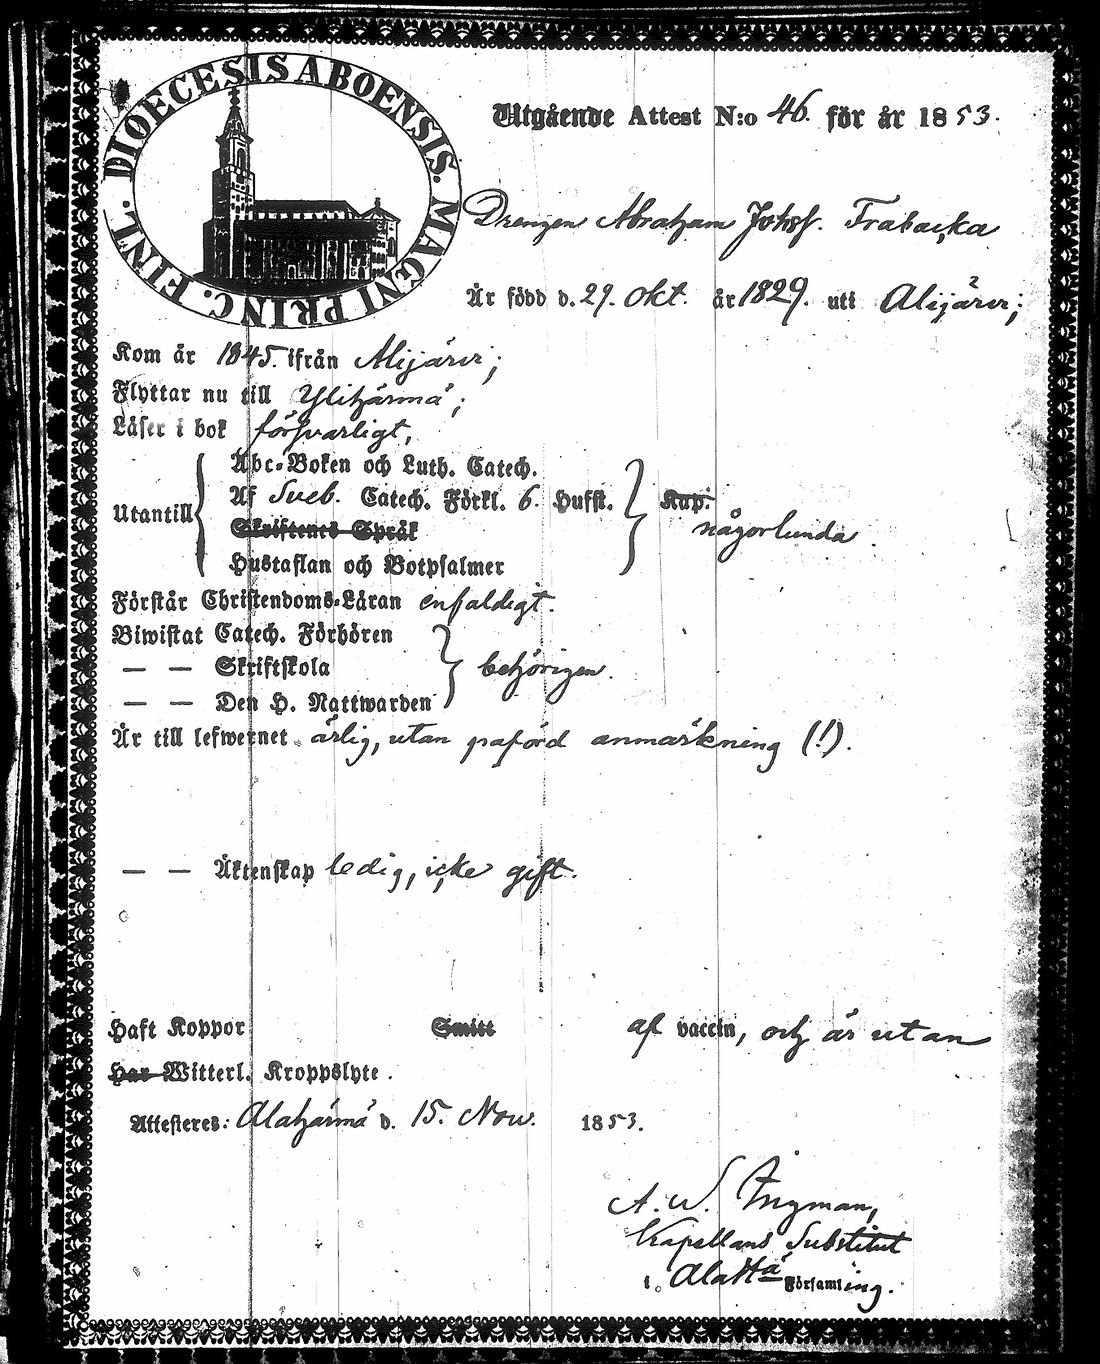 DIOECESIS ABOENSIS. MAGNI PRINC. FINL.
Utgående Attest N:o 46. för år 1853.
Drengen Abraham Johsf. Frabacka
Är född d. 29. Okt. år 1829. uti Alijärvi;
Kom år 1845. ifrån Alijärvi;
Flyttar nu till Ylihärmä;
Läser i bok försvarligt,
Abc-Boken och Luth. Catech.
Utantill Af Sveb. Catech. Förkl. 6. Hufst. Kap. någorlunda.
Skriftenes Språk
Hustaflan och Botpsalmer
Förstår Christendoms-Läran enfaldigt.
Biwistat Catech. Förhören
— — Skriftskola behörigen.
— — Den H. Nattwarden
Är till lefwernet ärlig, utan påförd anmärkning (!).
— — Äktenskap ledig, icke gift.
Haft Koppor Smitt af vaccin, och är utan
Har Witterl. Kroppslyte.
Attesteres: Alahärmä d. 15. Nov. 1853.
A. W. Ingman,
Kapellans Substitut
i. Församling.